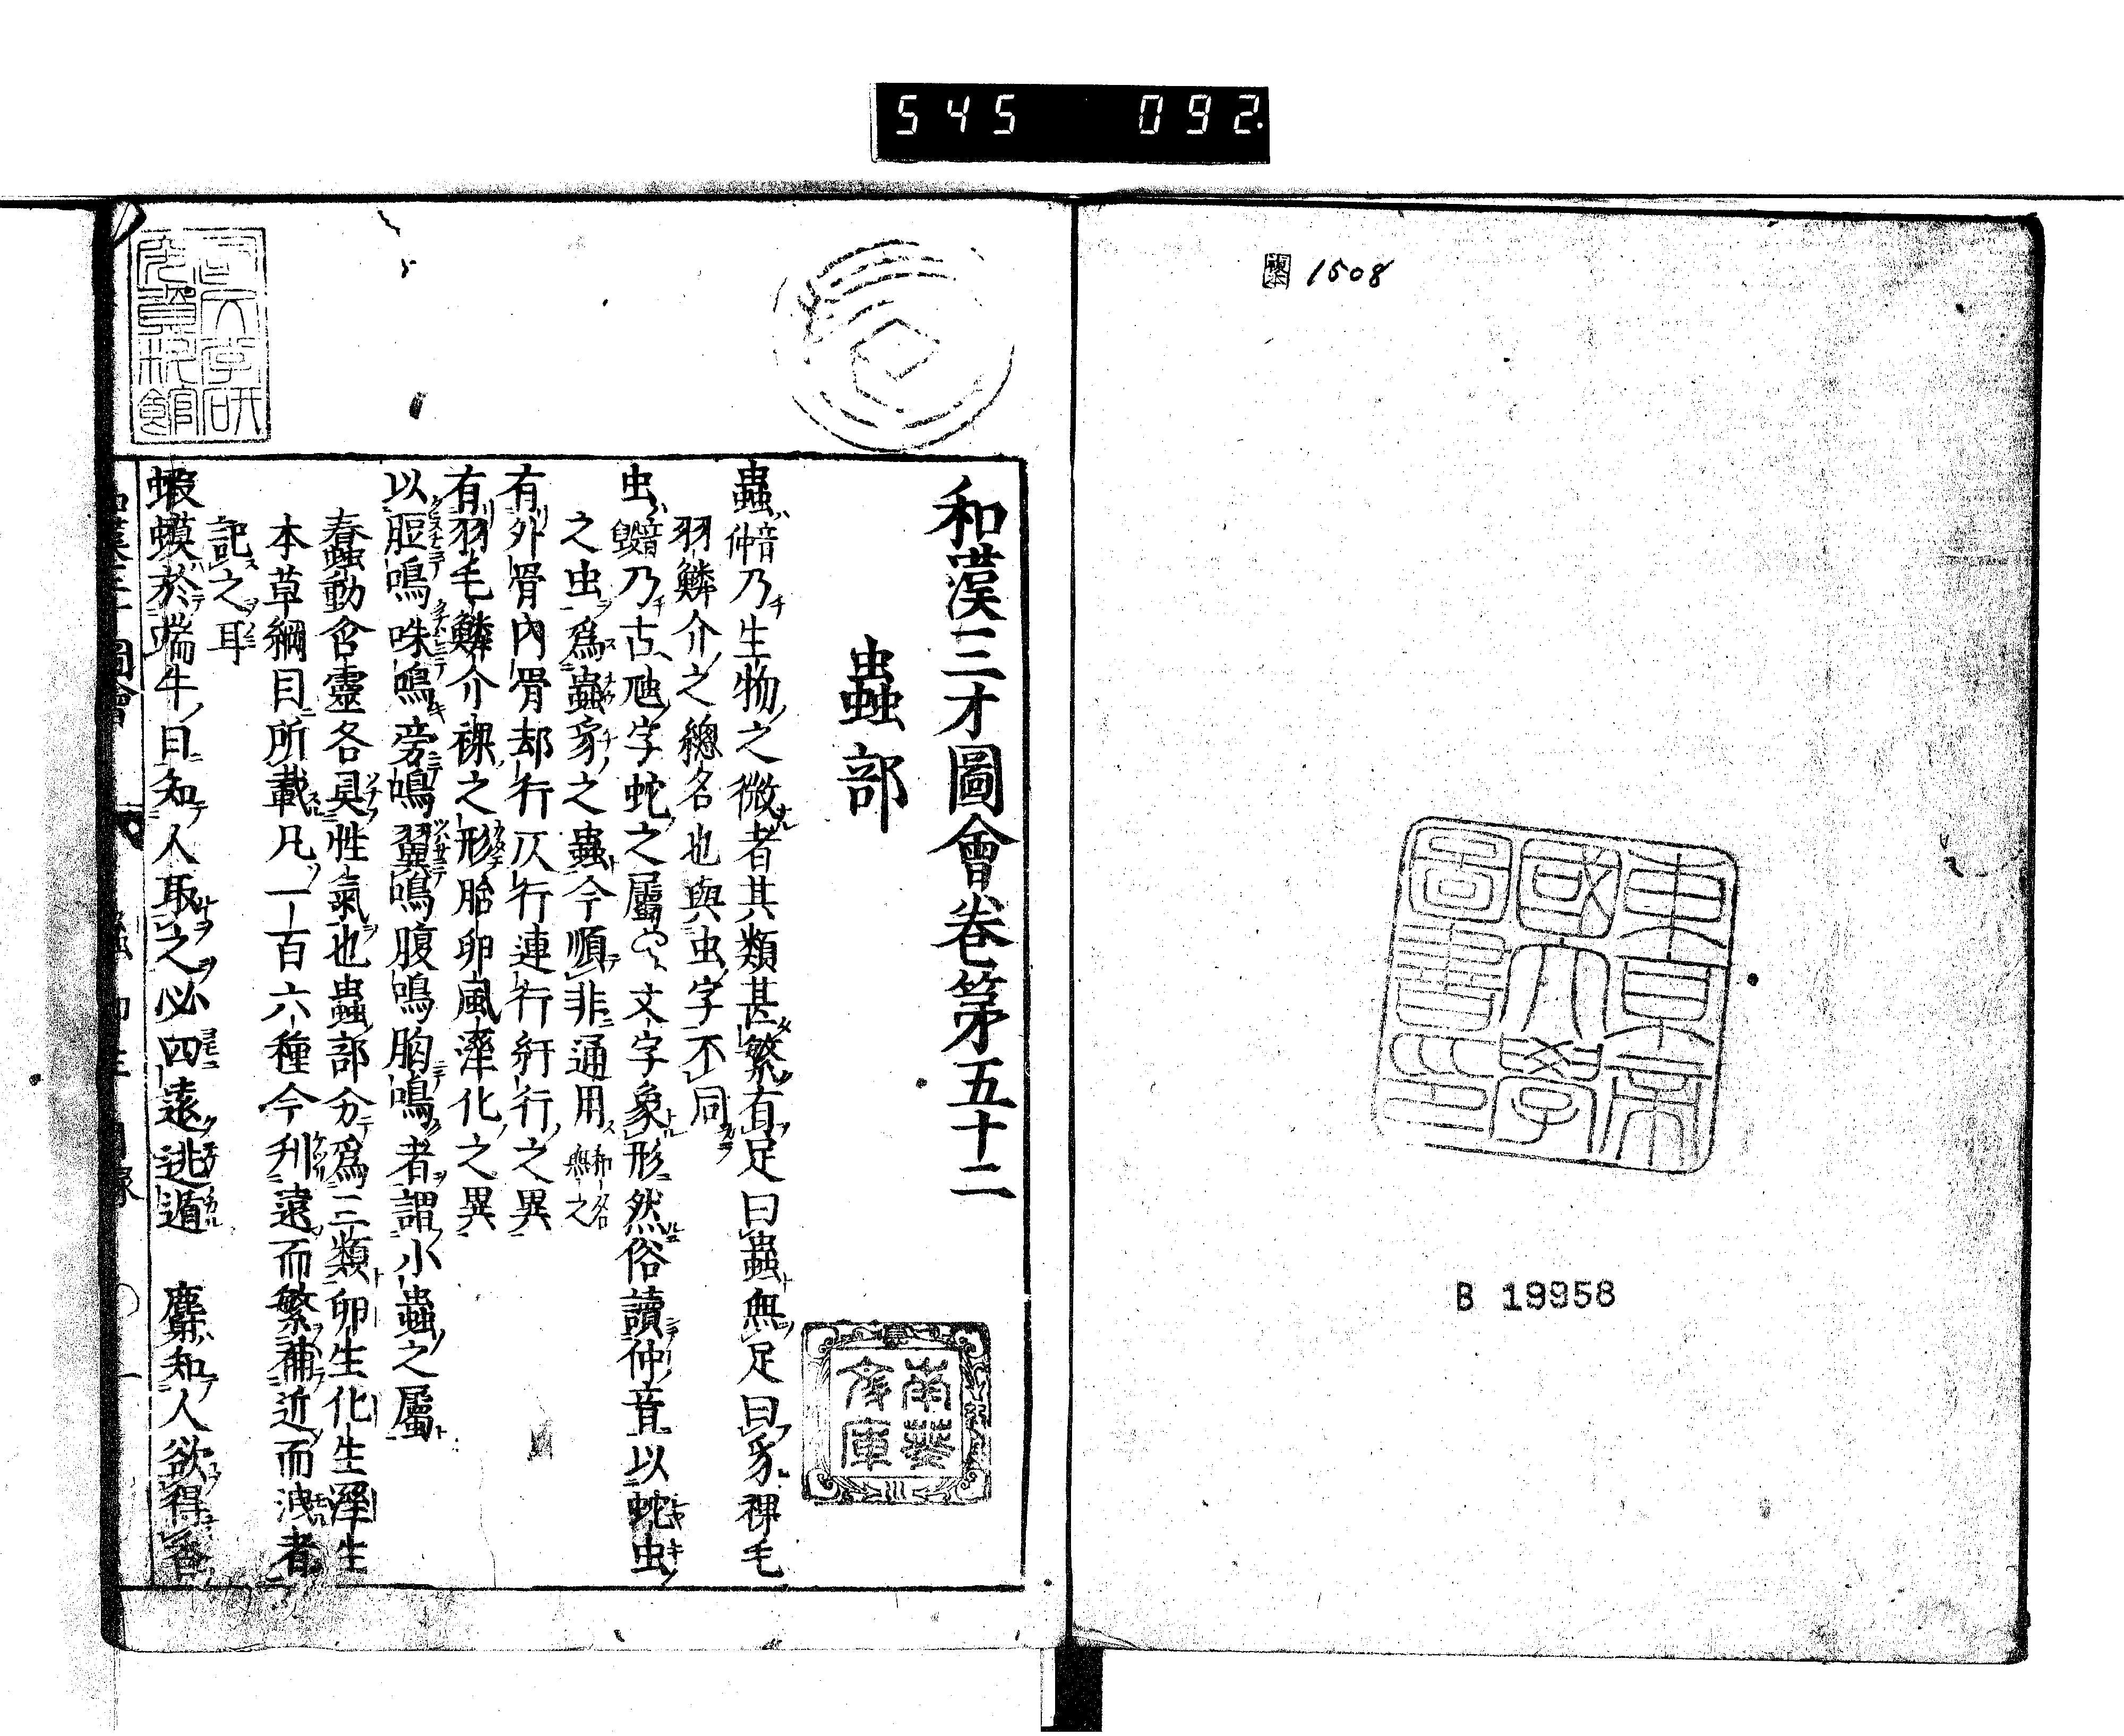 545 092.
1508
東京帝
國大學
圖書印
B 19958
和漢三才圖會卷第五十二
蟲部
蟲音仲乃生物之微者其類甚繁有足曰蟲無足曰豸裸毛
羽鱗介之總名也與虫字不同
虫音毀乃古虺字蛇之屬文字象形然俗讀仲音以蛇虫
之虫爲蟲豸之蟲今順非通用和名無之
有外骨內骨却行仄行連行紆行之異
有羽毛鱗介裸之形胎卵風濕化之異
以脰鳴咮鳴旁鳴翼鳴腹鳴胸鳴者謂小蟲之屬
蠢動含靈各具性氣也蟲部分爲三類卵生化生濕生
本草綱目所載凡一百六種今刋遠而繁補近而洩者
記之耳
蝦蟆於端午日知人取之必四遠逃遁 麝知人欲得香
南葵
文庫